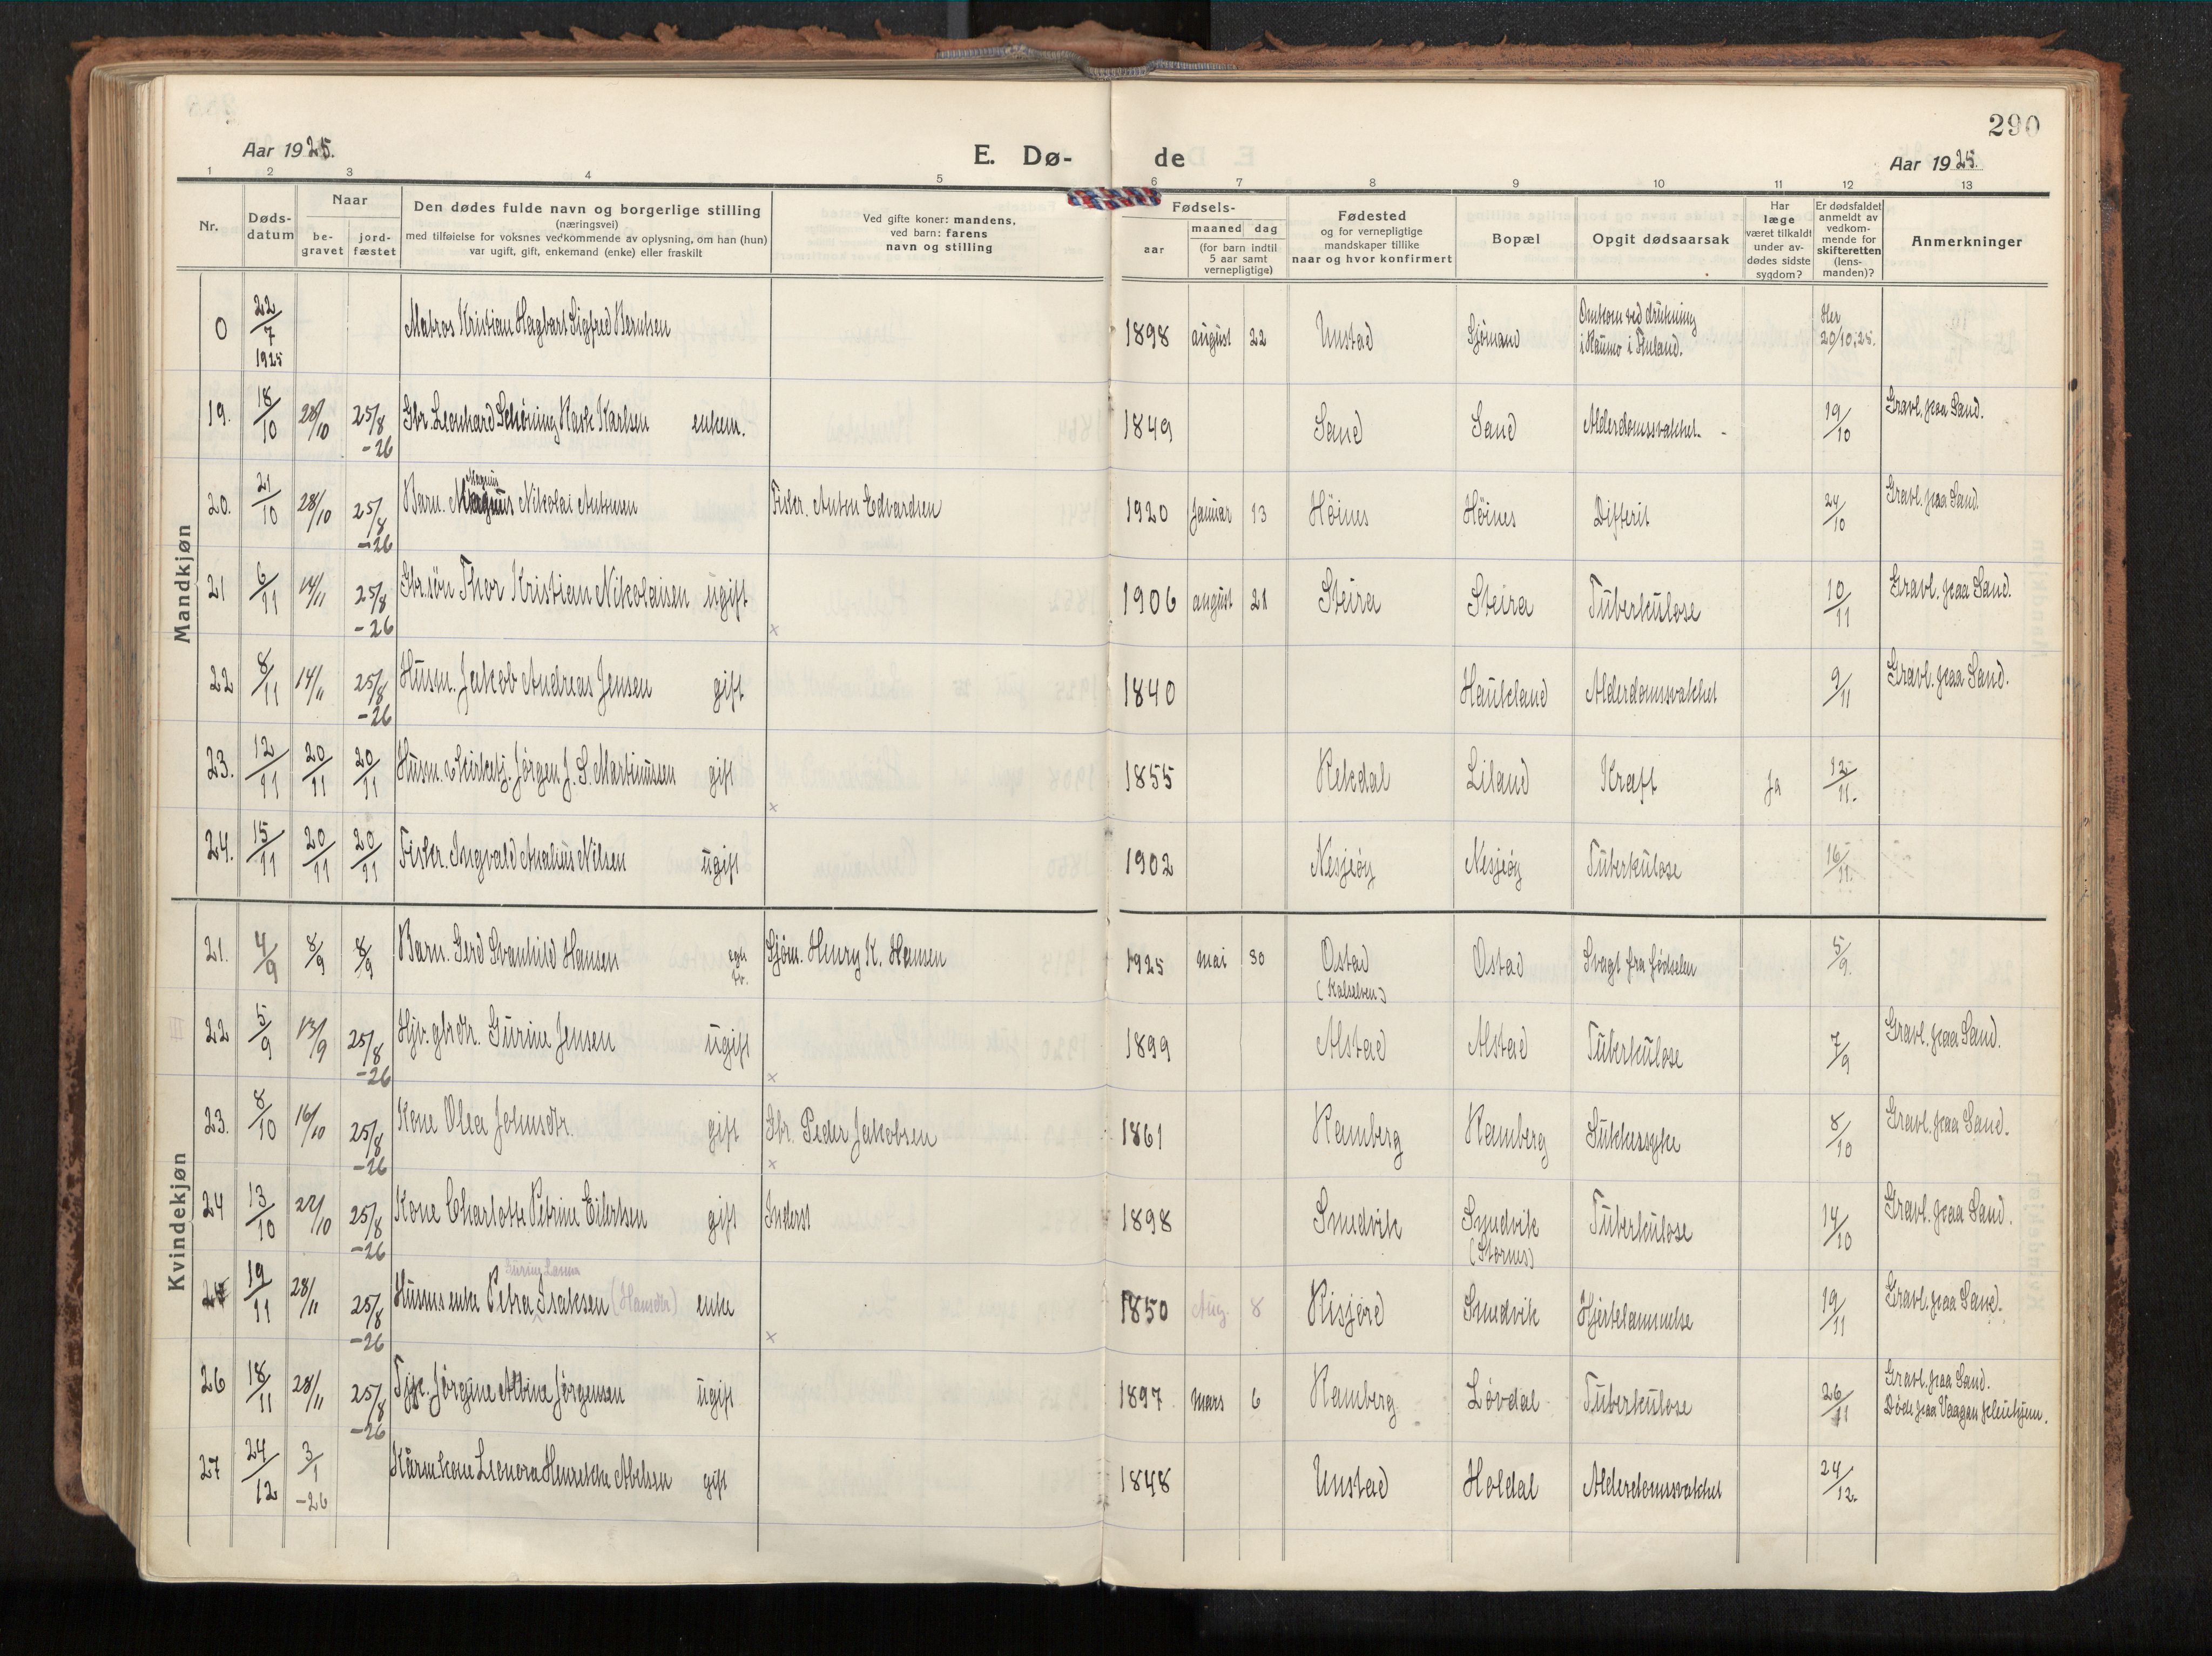 290
Aar 1925.
E. Dø-
de
Aar 1925.
1 2 3 4 5 6 7 8 9 10 11 12 13
Nr.
Døds-
datum
Naar
be-
gravet
jord-
fæstet
Den dødes fulde navn og borgerlige stilling
(næringsvei)
med tilføielse for voksnes vedkommende av oplysning, om han (hun)
var ugift, gift, enkemand (enke) eller fraskilt
Ved gifte koner: mandens,
ved barn: farens
navn og stilling
Fødsels-
aar
maaned dag
(for barn indtil
5 aar samt
vernepligtige)
Fødested
og for vernepligtige
mandskaper tillike
naar og hvor konfirmert
Bopæl
Opgit dødsaarsak
Har
læge
været tilkaldt
under av-
dødes sidste
sygdom?
Er dødsfaldet
anmeldt av
vedkom-
mende for
skifteretten
(lens-
manden)?
Anmerkninger
Mandkjøn
0 22/7 1925 Matros Kristian Hagbart Sigfred Berntsen 1898 august 22 Unstad Sjömand Omkom ved drukning
i Raumo i Finland. 20/10.25.
19. 18/10 28/10 25/8 -26 Gbr. Leonhard Schöning Rask Karlsen enkem. 1849 Sand Sand Alderdomssvakhet 19/10 Gravl. paa Sand.
20. 21/10 28/10 25/8 -26 Barn. Magnus Magnus Nikolai Antonsen Fisker. Anton Edvardsen 1920 Januar 13 Höines Höines Difterit 24/10 Gravl. paa Sand.
21 6/11 14/11 25/8 -26 Gbr.sön Thor Kristian Nikolaisen ugift × 1906 august 21 Steira Steira Tuberkulose 10/11 Gravl. paa Sand.
22 8/11 14/11 25/8 -26 Husm. Jakob Andreas Jensen gift 1840 Haukland Alderdomssvakhet 9/11 Gravl. paa Sand.
23. 12/11 20/11 20/11 Husm. & Kirketj. Jørgen J. S. Martinussen gift × 1855 Rekdal Liland Kræft Ja 12/11.
24. 15/11 20/11 20/11 Fisker. Ingvald Analius Nilsen ugift 1902 Nesjeöy Nesjeöy Tuberkulose 16/11.
Kvindekjøn
21. 4/9 8/9 8/9 Barn. Gerd Svanhild Hansen Sjöm. Henry K. Hansen 1925 Mai 30 Ostad Ostad Svagt fra fødselen 5/9.
22 5/9 13/9 25/8 -26 Hjv. gbrdtr. Gurine Jensen ugift × 1899 Alstad Alstad Tuberkulose 7/9 Gravl. paa Sand.
23. 8/10 16/10 25/8 -26 Kone Olea Johnsdtr. gift Gbr. Peder Jakobsen × 1861 Ramberg Ramberg Sukkersyke 8/10 Gravl. paa Sand.
24 13/10 22/10 25/8 -26 Kone Charlotte Petrine Eilertsen gift Inderst 1898 Smedvik Smedvik
(Stornes) Tuberkulose 14/10 Gravl. paa Sand.
19/11 28/11 25/8 -26 Husms enke Petra Isaksen (Hansdtr) enke × 1850 Aug. 8 Risjord Smedvik Hjertelammelse 19/11 Gravl. paa Sand.
26 18/11 28/11 25/8 -26 Tjp. Jørgine Albine Jørgensen ugift 1897 Mars 6 Ramberg Løvdal Tuberkulose 26/11 Gravl. paa Sand.
Døde paa Vaagan pleiehjem.
27 24/12 3/1 -26 Kårmkone Leonora Henrikke Abelsen gift 1848 Unstad Holdal Alderdomssvakhet 24/12.